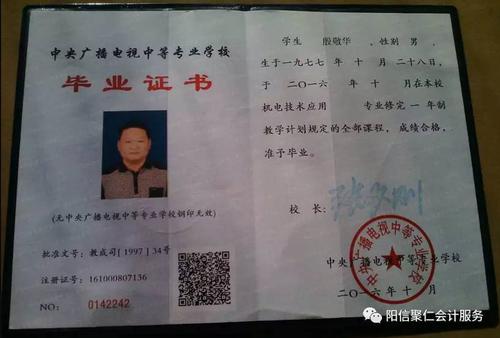 中央广播电视中等专业学校
毕业证书
(无中央广播电视中等专业学校钢印无效)
批准文号：教成司[1997]34号
注册证号：161000807136
NO： 0142242
学生 殷敬华 ，性别 男 ，
生于一九七七 年 十 月 二十八日，
于 二〇一六 年 十 月在本校
机电技术应用 专业修完 一 年制
教学计划规定的全部课程，成绩合格，
准予毕业。
校 长：
中央广播电视中等专业学校
中央广播电视中等专业学校
二〇一六年 十 月
阳信聚仁会计服务